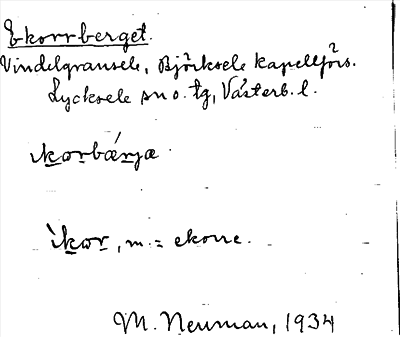 Ekorrberget.
Vindelgransele, Björksele kapellförs.
Lycksele sn o. tg, Västerb. l.
ikorbærjæ
ìkor, m. = ekorre.
M. Neuman, 1934